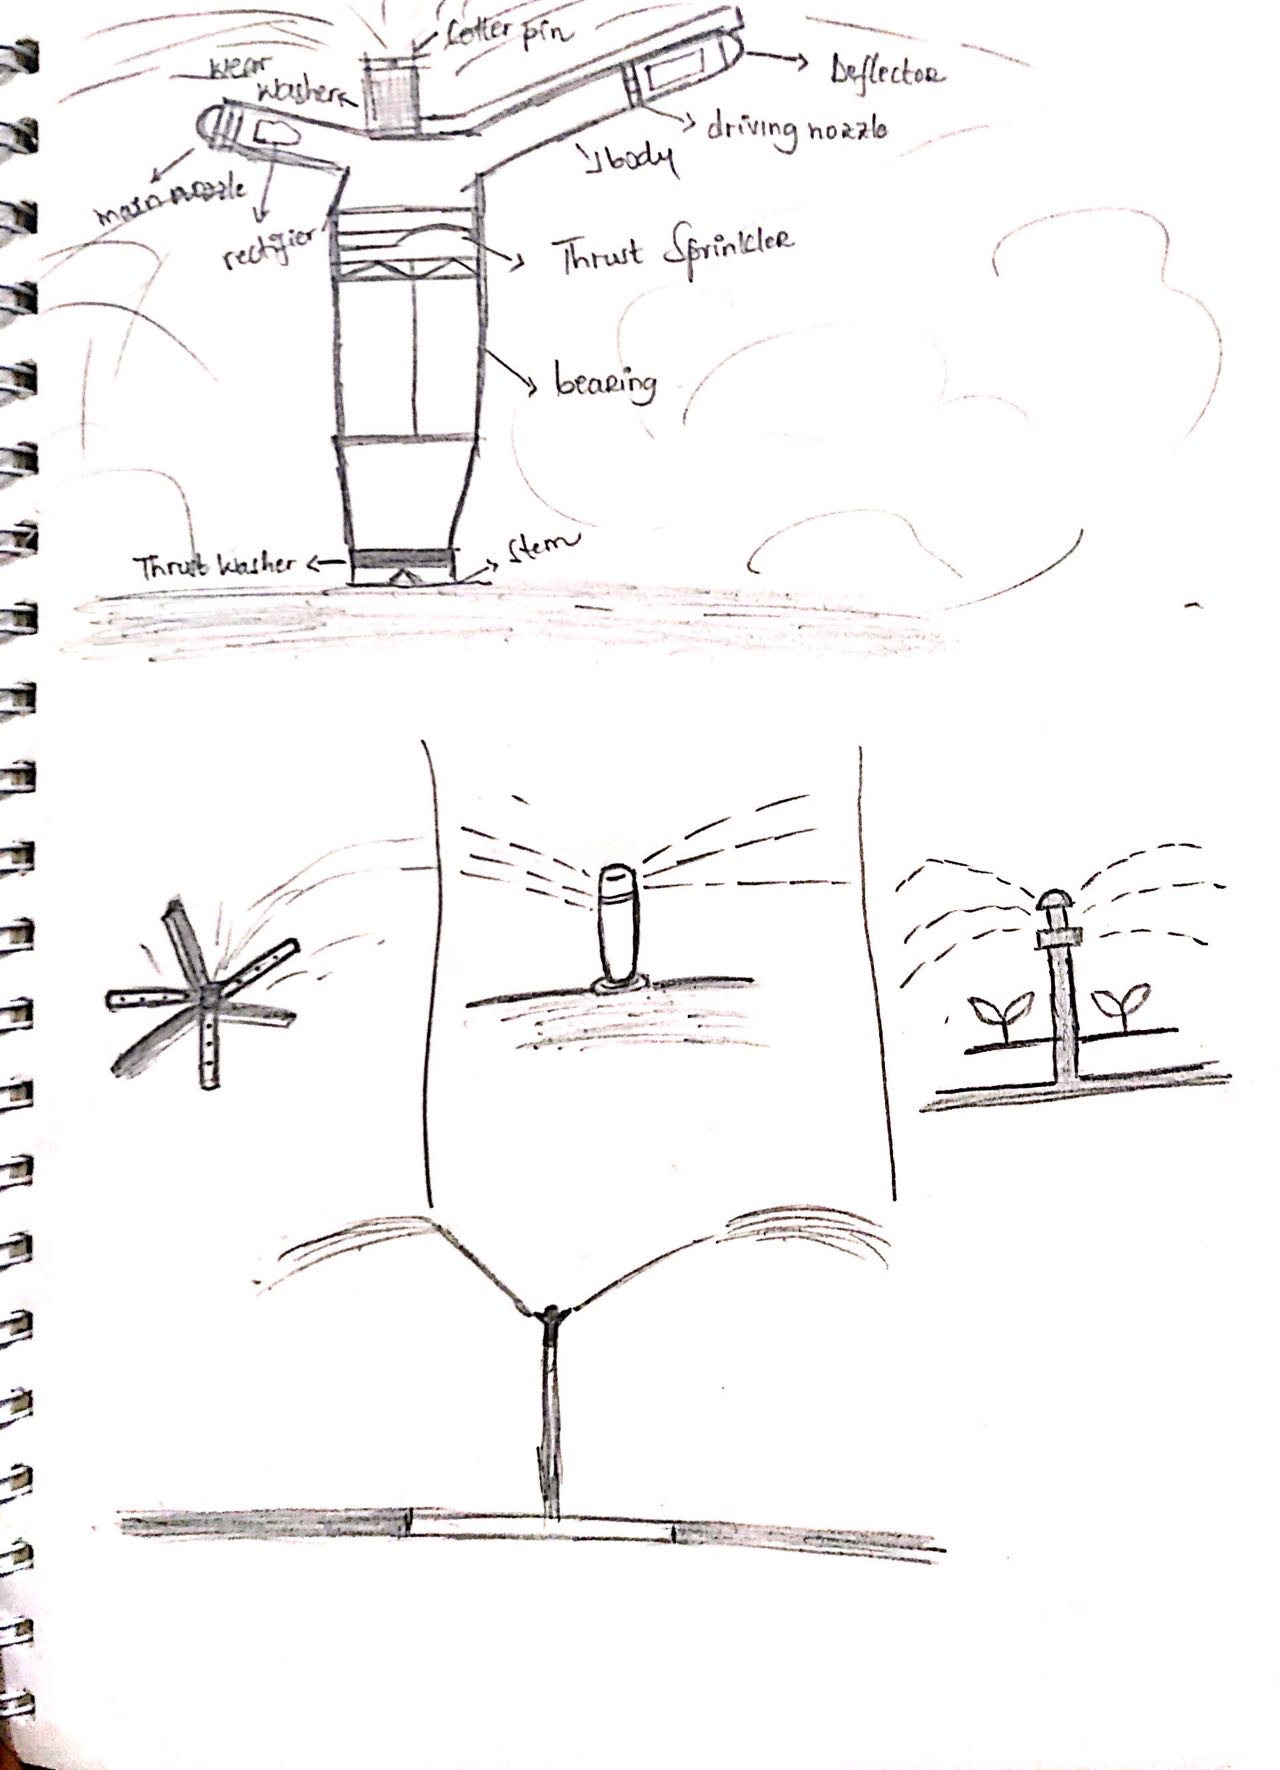 Cotter pin
wear
washer
Deflector
driving nozzle
body
main nozzle
rectifier
Thrust Sprinkler
bearing
Thrust washer
Stem